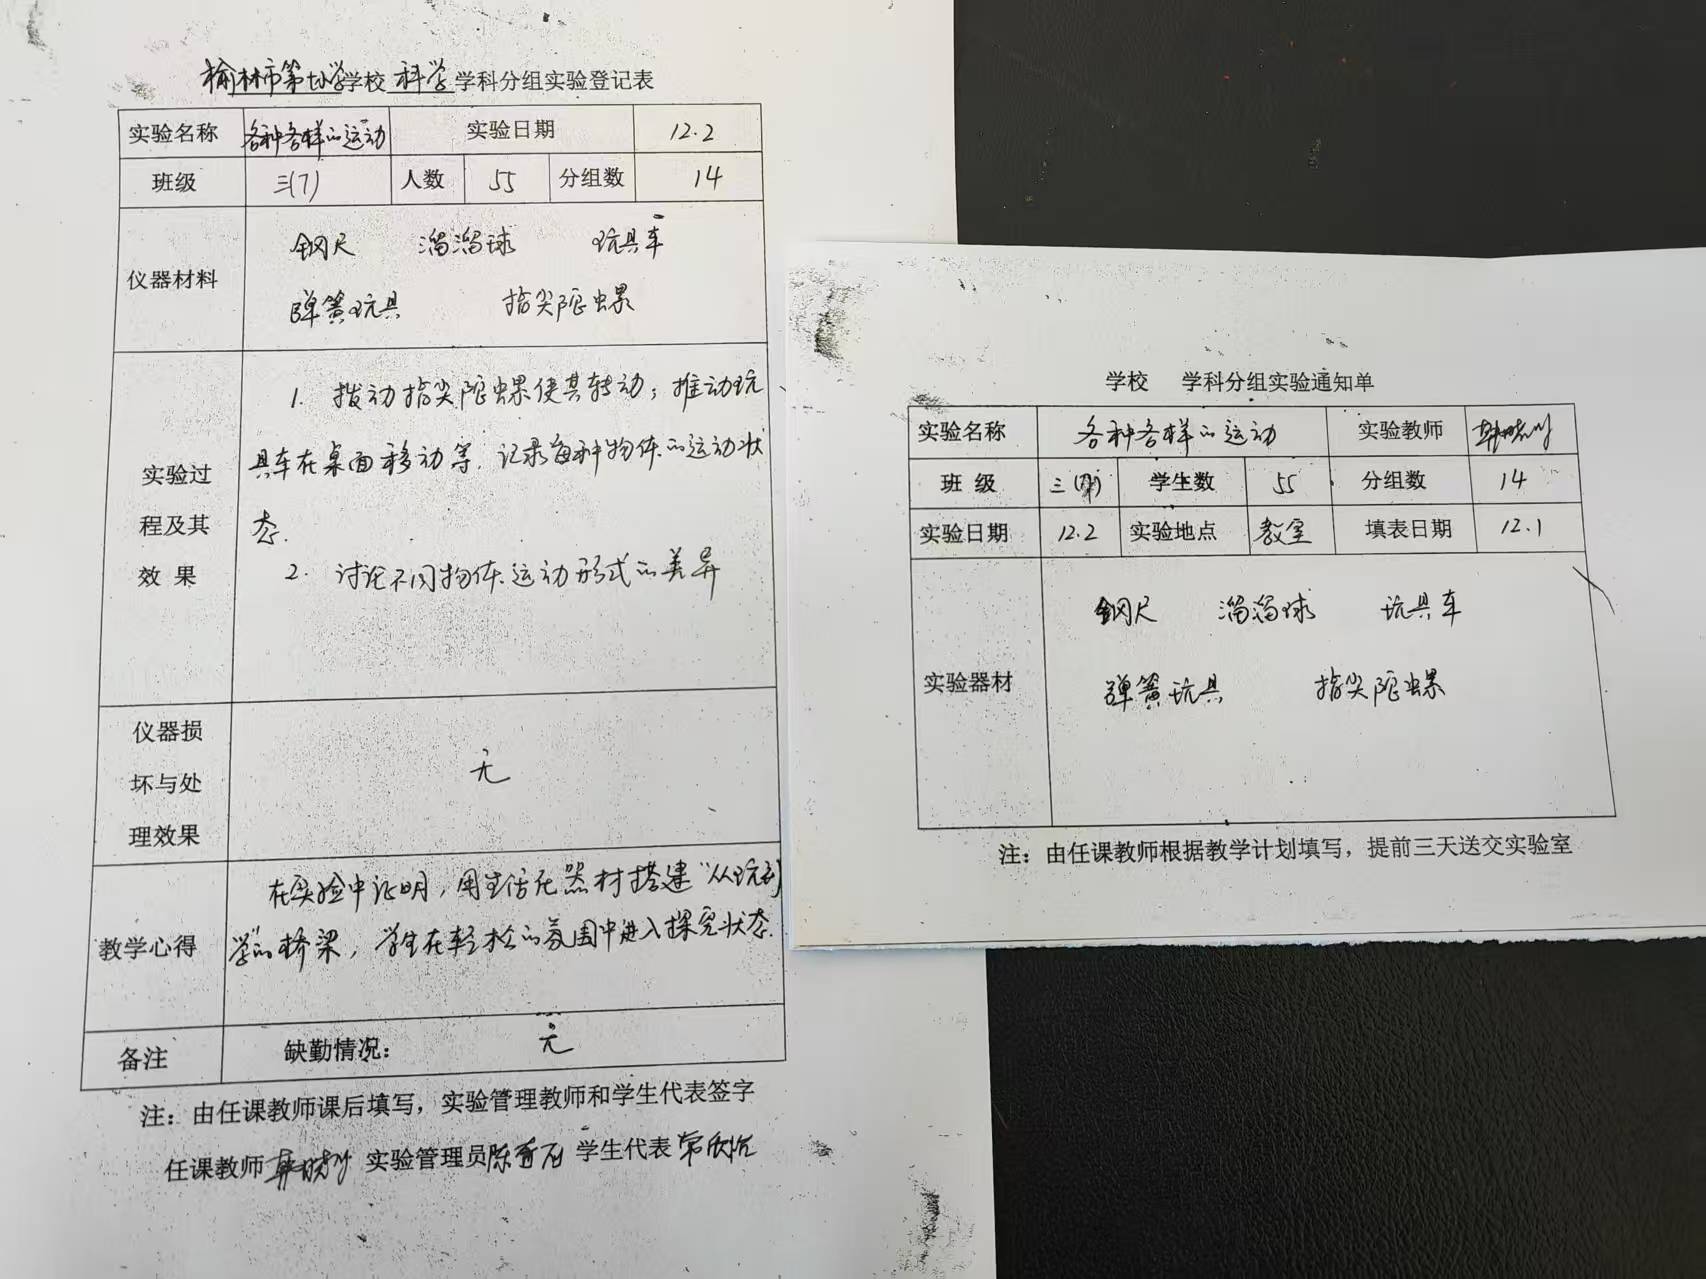 榆林市第十小学学校 科学 学科分组实验登记表
实验名称 各种各样的运动 实验日期 12.2
班级 三(7) 人数 55 分组数 14
仪器材料 钢尺 溜溜球 玩具车
弹簧玩具 指尖陀螺
实验过程及其效果
1. 拨动指尖陀螺使其转动；推动玩
具车在桌面移动等，记录每种物体的运动状
态.
2. 讨论不同物体运动形式的差异
仪器损坏与处理效果 无
教学心得
在实验中证明，用生活化器材搭建"从玩到
学"的桥梁，学生在轻松的氛围中进入探究状态.
备注 缺勤情况： 无
注：由任课教师课后填写，实验管理教师和学生代表签字
任课教师 实验管理员 学生代表
学校 学科分组实验通知单
实验名称 各种各样的运动 实验教师
班级 三 学生数 55 分组数 14
实验日期 12.2 实验地点 教室 填表日期 12.1
实验器材 钢尺 溜溜球 玩具车
弹簧玩具 指尖陀螺
注：由任课教师根据教学计划填写，提前三天送交实验室